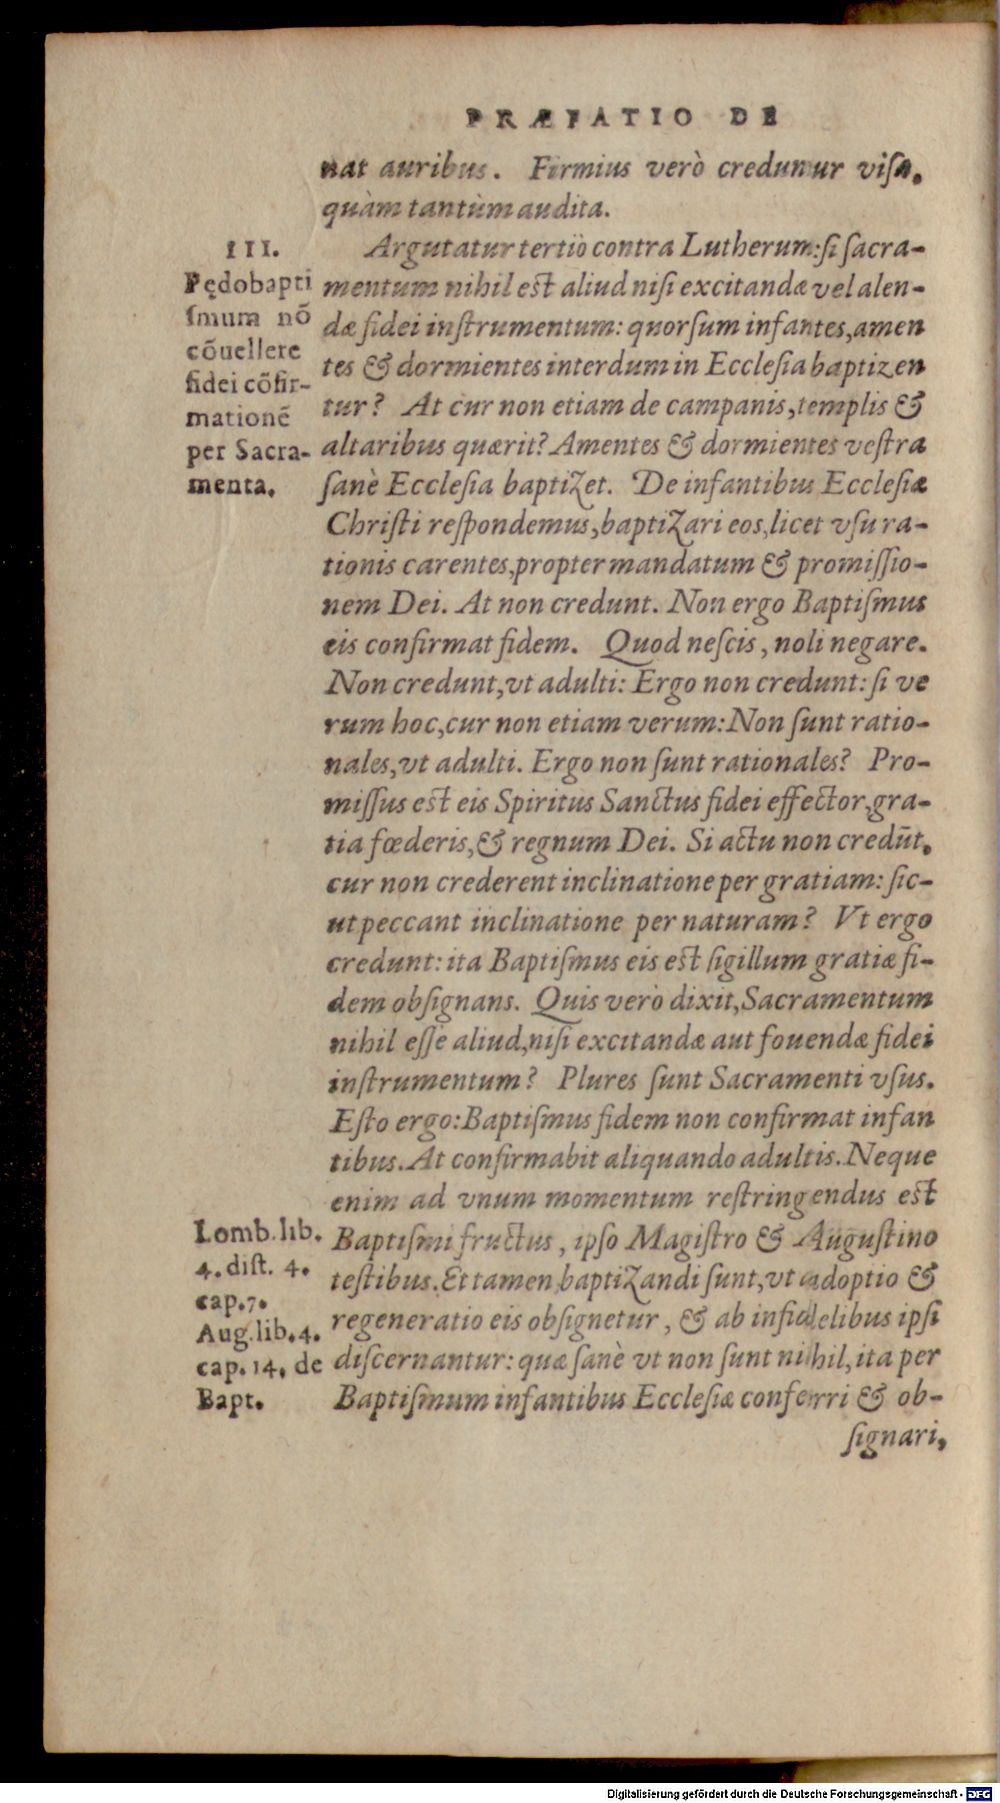 PRÆFATIO DE
nat auribus. Firmius verò creduntur visa,
quàm tantùm audita.
III.
Pędobapti
ſmum nō
cōuellere
fidei cōfir-
mationē
per Sacra-
menta.
Argutatur tertiò contra Lutherum: ſi ſacra-
mentum nihil eſt aliud niſi excitandæ vel alen-
dæ fidei inſtrumentum: quorſum infantes, amen
tes & dormientes interdum in Eccleſia baptizen
tur? At cur non etiam de campanis, templis &
altaribus quærit? Amentes & dormientes veſtra
ſanè Eccleſia baptizet. De infantibus Eccleſiæ
Chriſti reſpondemus, baptizari eos, licet vſu ra-
tionis carentes, propter mandatum & promiſſio-
nem Dei. At non credunt. Non ergo Baptiſmus
eis confirmat fidem. Quod neſcis, noli negare.
Non credunt, vt adulti: Ergo non credunt: ſi ve
rum hoc, cur non etiam verum: Non ſunt ratio-
nales, vt adulti. Ergo non ſunt rationales? Pro-
miſſus eſt eis Spiritus Sanctus fidei effector, gra-
tia fœderis, & regnum Dei. Si actu non credūt,
cur non crederent inclinatione per gratiam: ſic-
ut peccant inclinatione per naturam? Vt ergo
credunt: ita Baptiſmus eis eſt ſigillum gratiæ fi-
dem obſignans. Quis verò dixit, Sacramentum
nihil eſſe aliud, niſi excitandæ aut fouendæ fidei
inſtrumentum? Plures ſunt Sacramenti vſus.
Eſto ergo: Baptiſmus fidem non confirmat infan
tibus. At confirmabit aliquando adultis. Neque
enim ad vnum momentum reſtringendus eſt
Lomb. lib.
4. diſt. 4.
cap. 7.
Aug. lib. 4.
cap. 14. de
Bapt.
Baptiſmi fructus, ipſo Magiſtro & Auguſtino
teſtibus. Et tamen baptizandi ſunt, vt adoptio &
regeneratio eis obſignetur, & ab infidelibus ipſi
diſcernantur: quæ ſanè vt non ſunt nihil, ita per
Baptiſmum infantibus Eccleſiæ conferri & ob-
ſignari,
Digitalisierung gefördert durch die Deutsche Forschungsgemeinschaft - DFG